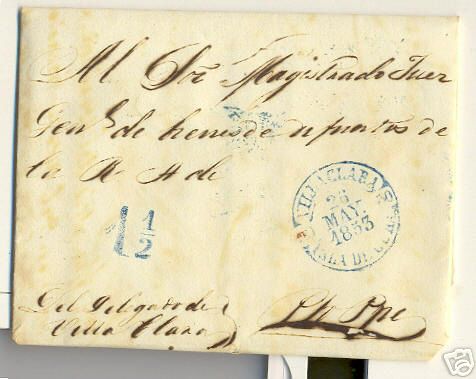 Al Sor Magistrado Juez
Genl. de bienes de difuntos de
la R. A de
VILLACLARA
26
MAY.
1853
ISLA DE CUBA
1½
Del Delegado de
Villa Clara
Pto Ppe
ebY